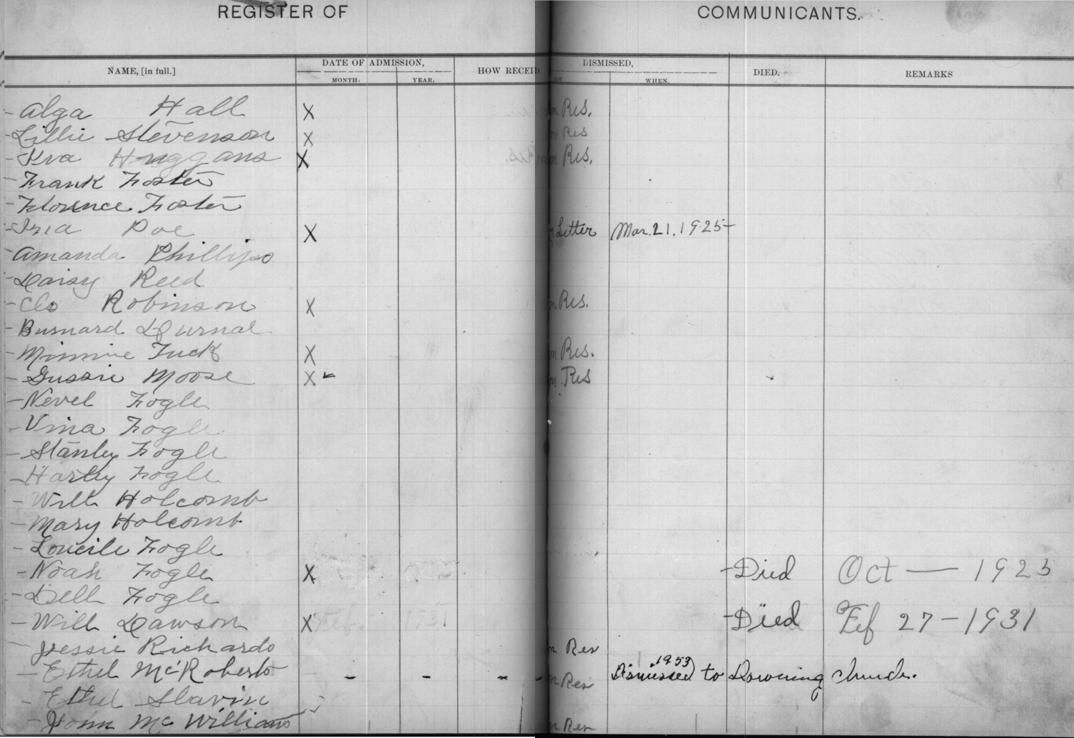 REGISTER OF COMMUNICANTS.
NAME, [in full.] DATE OF ADMISSION, HOW RECEI DISMISSED, DIED. REMARKS
MONTH. YEAR. WHEN.
- Alga Hall X Res.
- Lillie Stevenson X Res
- Iva Huggans X Res.
- Frank Foster
- Florence Foster
- Poe X Letter Mar. 21, 1925
- Amanda Phillips
- Daisy Reed
- Clo Robinson X Res.
- Burnard Durnal
- Minnie Tuck X Res.
- Gussie Moose X Res
- Nevel Fogle
- Vina Fogle
- Stanley Fogle
- Harley Fogle
- Will Holcomb
- Mary Holcomb
- Loucile Fogle
- Noah Fogle X - Died Oct — 1923
- Dell Fogle
- Will Dawson X - Died Fef 27-1931
- Jessie Richards Res
- Ethel McRoberts - - - Res Dismissed 1953 to Downing church.
- Ethel Slavin
- John McWilliams Res